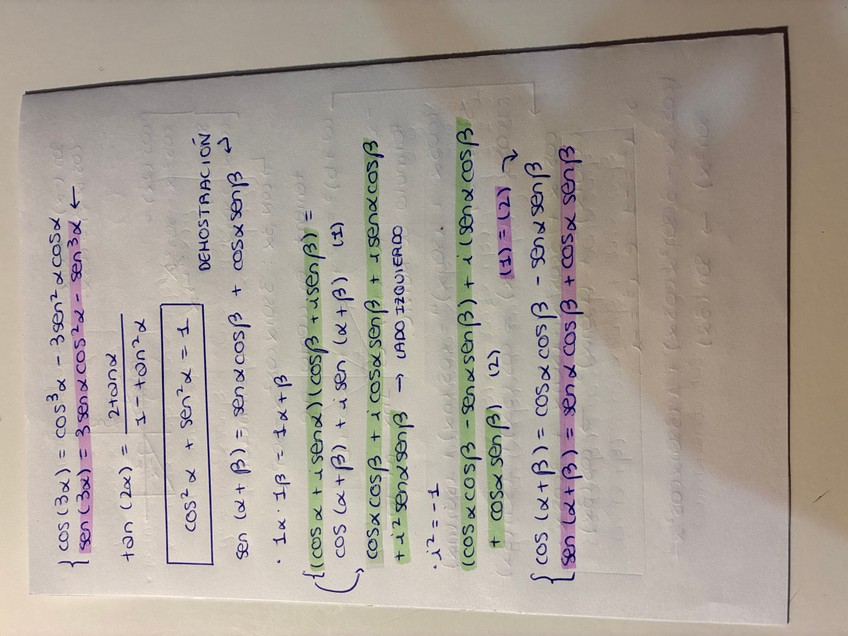 cos(3α) = cos³α - 3sen²αcosα
sen(3α) = 3senαcos²α - sen³α ←
tan(2α) = 2tanα / 1 - tan²α
cos²α + sen²α = 1
DEMOSTRACIÓN
sen(α+β) = senαcosβ + cosαsenβ ↵
· 1α · 1β = 1α+β
(cosα + isenα)(cosβ + isenβ) =
cos(α+β) + isen(α+β) (1)
cosαcosβ + icosαsenβ + isenαcosβ
+ i²senαsenβ → LADO IZQUIERDO
· i² = -1
(cosαcosβ - senαsenβ) + i(senαcosβ
+ cosαsenβ) (2) (1) = (2) ↴
cos(α+β) = cosαcosβ - senαsenβ
sen(α+β) = senαcosβ + cosαsenβ